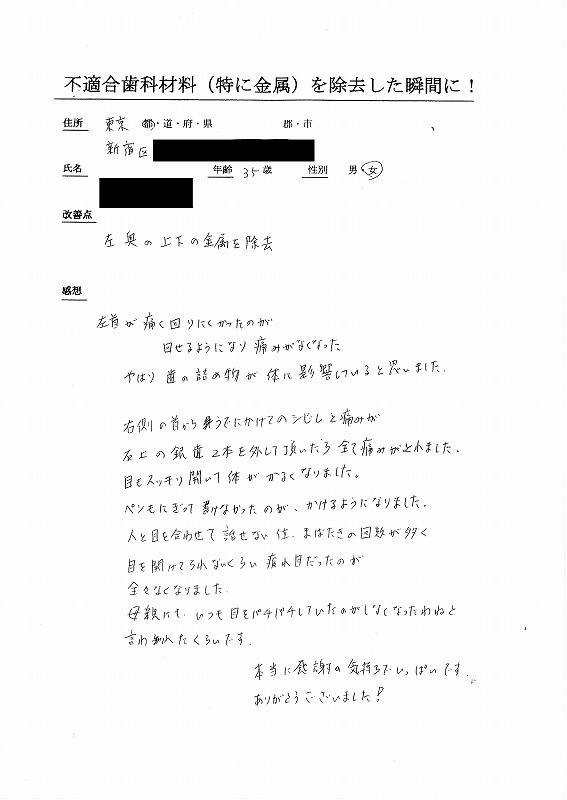 不適合歯科材料（特に金属）を除去した瞬間に！
住所 東京 都・道・府・県 郡・市
新宿区
氏名 年齢 35歳 性別 男 女
改善点
左奥の上下の金属を除去
感想
左首が痛く回りにくかったのが
回せるようになり痛みがなくなった
やはり歯の詰め物が体に影響していると思いました.
右側の首から肩うでにかけてのシビレと痛みが
右上の銀歯2本を外して頂いたら全て痛みがとれました.
目もスッキリ開いて体がかるくなりました。
ペンもにぎって書けなかったのが、かけるようになりました.
人と目を合わせて話せない位、まばたきの回数が多く
目を開けてられないくらい疲れ目だったのが
全々なくなりました.
母親にも、いつも目をパチパチしていたのがしなくなったわねと
言われたくらいです.
本当に感謝の気持ちでいっぱいです.
ありがとうございました！